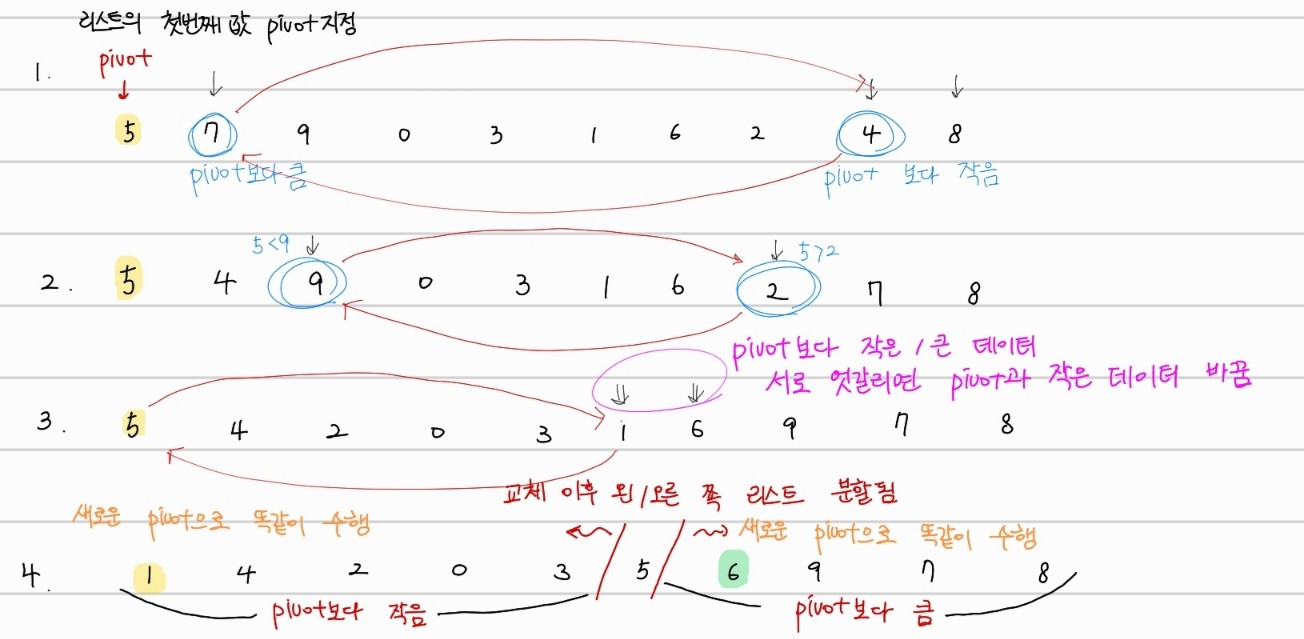 리스트의 첫번째 값 pivot 지정
1.
pivot
5 7 9 0 3 1 6 2 4 8
pivot보다 큼
pivot 보다 작음
5<9
5>2
2. 5 4 9 0 3 1 6 2 7 8
pivot보다 작은 / 큰 데이터
서로 엇갈리면 pivot과 작은 데이터 바꿈
3. 5 4 2 0 3 1 6 9 7 8
교체 이후 왼/오른 쪽 리스트 분할됨
새로운 pivot으로 똑같이 수행
새로운 pivot으로 똑같이 수행
4. 1 4 2 0 3 5 6 9 7 8
pivot보다 작음
pivot보다 큼